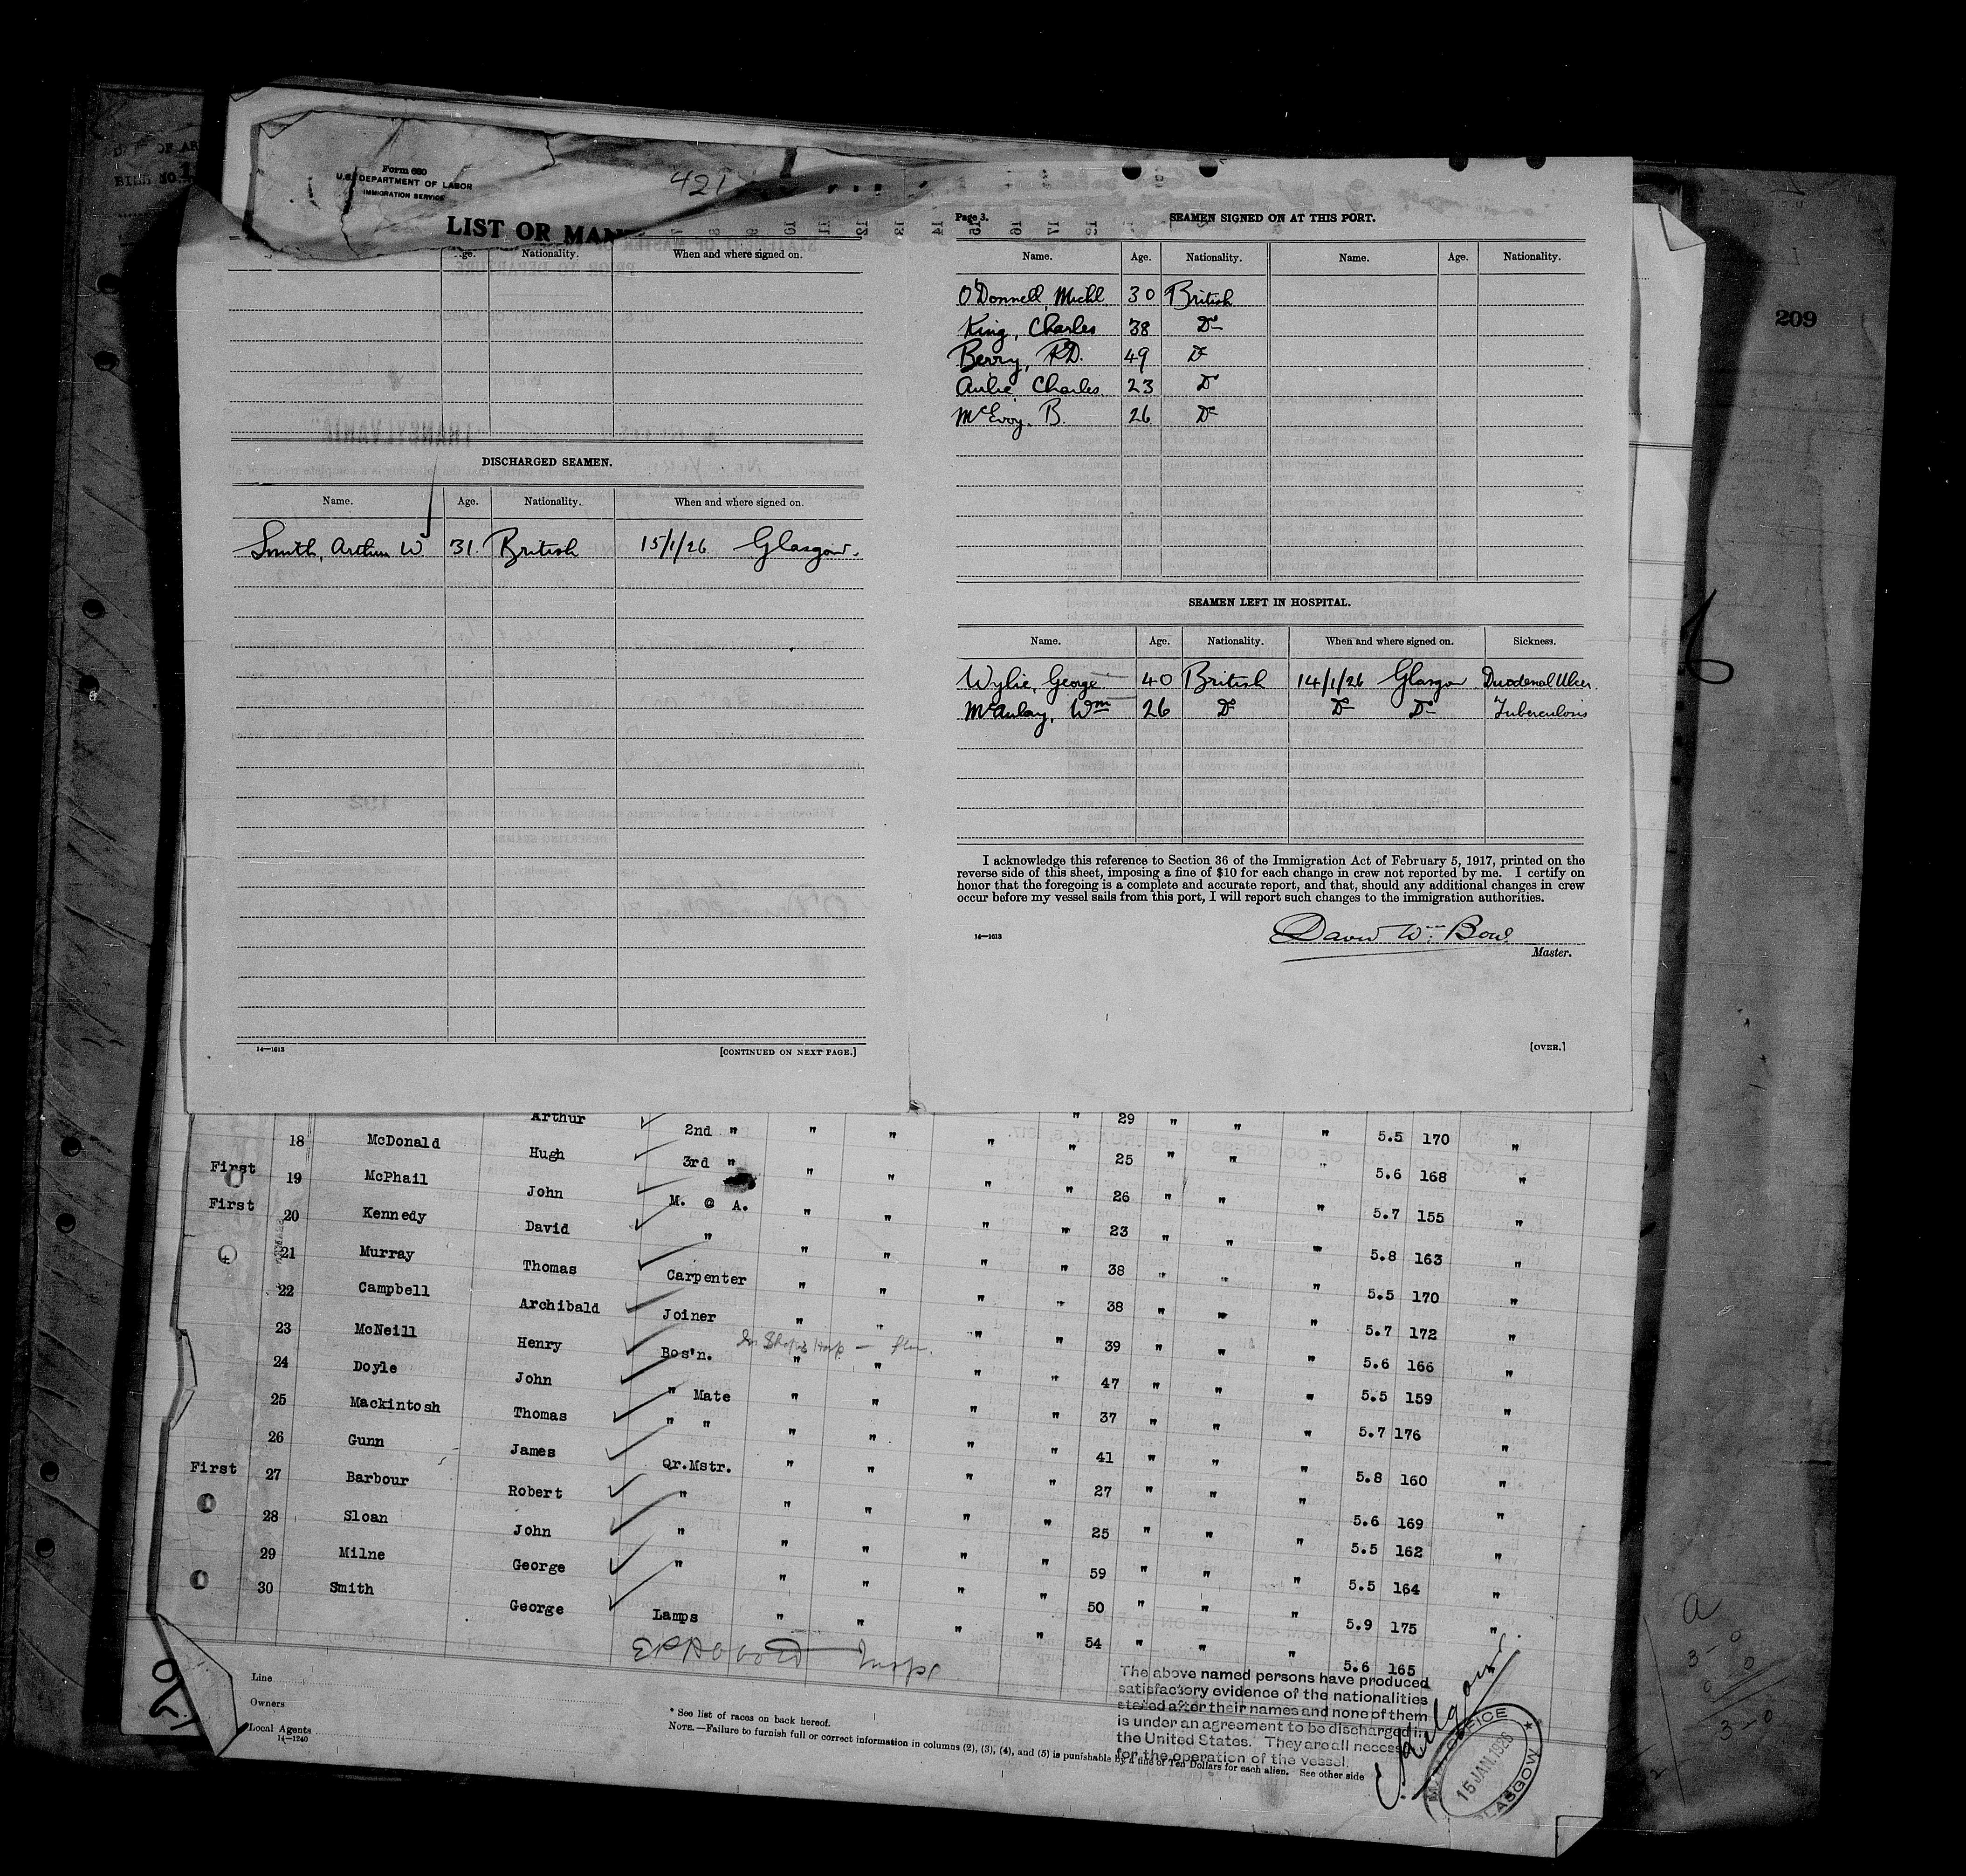 Form 680
U.S. DEPARTMENT OF LABOR
IMMIGRATION SERVICE
421
LIST OR MAN
Age. Nationality. When and where signed on.
DISCHARGED SEAMEN.
Name. Age. Nationality. When and where signed on.
Smith, Arthur W 31. British 15/1/26 Glasgow.
14—1613 [CONTINUED ON NEXT PAGE.]
Page 3. SEAMEN SIGNED ON AT THIS PORT.
Name. Age. Nationality. Name. Age. Nationality.
O'Donnell, Michl. 30 British
King, Charles 38 Do
Berry, R.D. 49 Do
Aulie Charles. 23 Do
McEvoy. B. 26 Do
SEAMEN LEFT IN HOSPITAL.
Name. Age. Nationality. When and where signed on. Sickness.
Wylie, George 40 British 14/1/26 Glasgow Duodenal Ulcer.
McAulay, Wm 26 Do Do Do Tuberculosis
I acknowledge this reference to Section 36 of the Immigration Act of February 5, 1917, printed on the
reverse side of this sheet, imposing a fine of $10 for each change in crew not reported by me. I certify on
honor that the foregoing is a complete and accurate report, and that, should any additional changes in crew
occur before my vessel sails from this port, I will report such changes to the immigration authorities.
David Wm. Bow.
14—1613 Master.
[OVER.]
209
Arthur 2nd " " " " " 29 " " " 5.5 170 "
18 McDonald Hugh 3rd " " " " " 25 " " " 5.6 168 "
First 19 McPhail John M. @ A. " " " " 26 " " " 5.7 155 "
First 20 Kennedy David " " " " " 23 " " " 5.8 163 "
21 Murray Thomas Carpenter " " " " 38 " " " 5.5 170 "
22 Campbell Archibald Joiner " " " " 38 " " " 5.7 172 "
23 McNeill Henry Bos'n. " " " " 39 " " " 5.6 166 "
24 Doyle John " Mate " " " " 47 " " " 5.5 159 "
25 Mackintosh Thomas " " " " " " 37 " " " 5.7 176 "
26 Gunn James Qr.Mstr. " " " " 41 " " " 5.8 160 "
First 27 Barbour Robert " " " " " 27 " " " 5.6 169 "
28 Sloan John " " " " " 25 " " " 5.5 162 "
29 Milne George " " " " " 59 " " " 5.5 164 "
30 Smith George Lamps " " " " 50 " " " 5.9 175 "
54 " " " 5.6 165
Line
Owners
Local Agents
14—1240
* See list of races on back hereof.
NOTE.—Failure to furnish full or correct information in columns (2), (3), (4), and (5) is punishable by a fine of Ten Dollars for each alien. See other side
The above named persons have produced
satisfactory evidence of the nationalities
stated after their names and none of them
is under an agreement to be discharged in
the United States. They are all necess
for the operation of the vessel.
OFFICE
15 JAN. 1926
GLASGOW
a
3-0
0
0
3-0